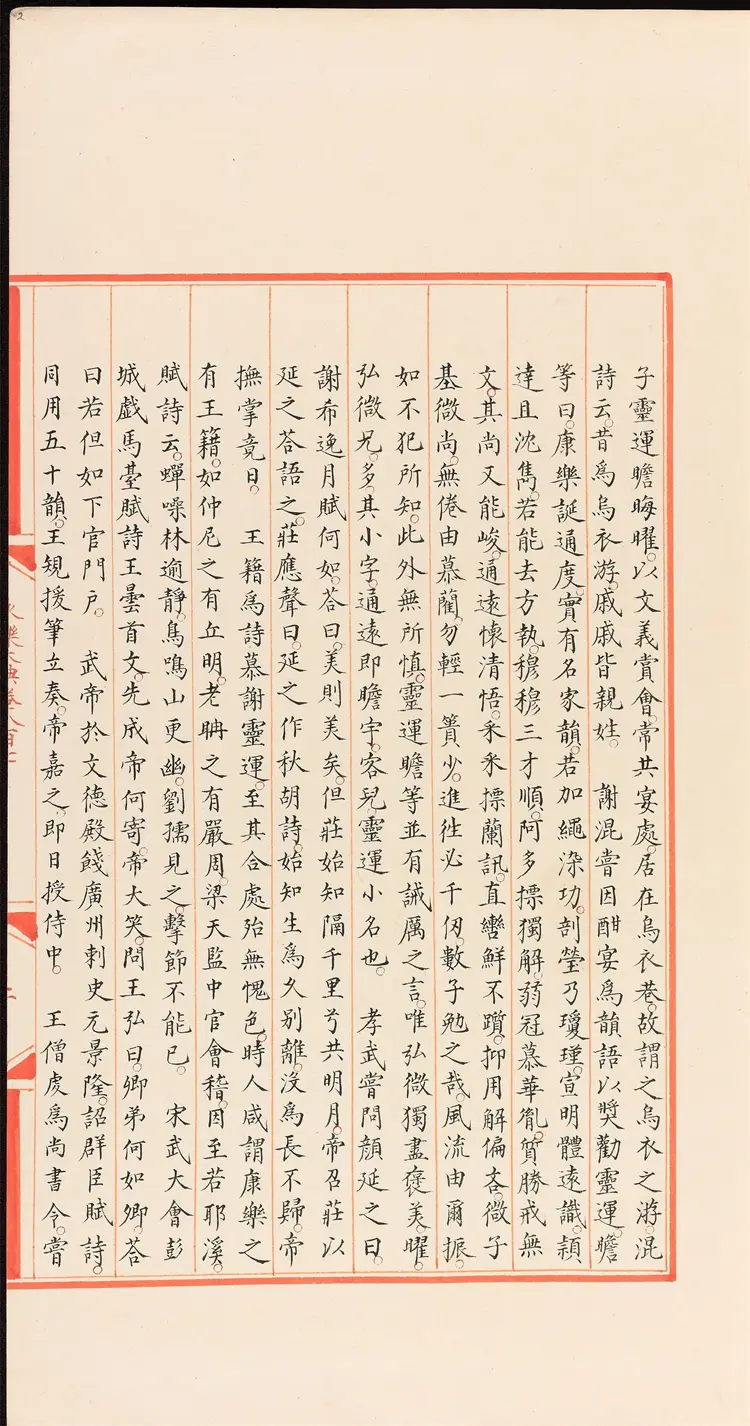 子靈運瞻晦曜。以文義賞會。常共宴處。居在烏衣巷。故謂之烏衣之游。混
詩云。昔爲烏衣游。戚戚皆親姓。 謝混嘗因酣宴爲韻語以奬勸靈運。瞻
等曰。康樂誕通度。實有名家韻。若加繩染功。剖瑩乃瓊瑾。宣明體遠識。頴
達且沈雋。若能去方執。穆穆三才順。阿多摽獨解。弱冠慕華胤。質勝戒無
文。其尚又能峻。通遠懷清悟。釆釆摽蘭訊。直轡鮮不躓。抑用解偏吝。微子
基微尚。無倦由慕藺。勿輕一簣少。進徃必千仭。數子勉之哉。風流由爾振。
如不犯所知。此外無所慎。靈運瞻等並有誡厲之言。唯弘微獨盡褒美。曜。
弘微兄。多其小字。通遠即瞻字。客兒。靈運小名也。 孝武嘗問顔延之曰。
謝希逸月賦何如。荅曰。美則美矣。但莊始知隔千里兮共明月。帝召莊以
延之荅語之。莊應聲曰。延之作秋胡詩。始知生爲久别離。沒爲長不歸。帝
撫掌竟日。 王籍爲詩慕謝靈運。至其合處殆無愧色。時人咸謂康樂之
有王籍。如仲尼之有丘明。老耼之有嚴周。梁天監中官會稽。因至若耶溪。
賦詩云。蟬噪林逾靜。鳥鳴山更幽。劉孺見之。擊節不能已。 宋武大會彭
城戲馬臺賦詩王曇首文。先成帝何寄。帝大笑。問王弘曰。卿弟何如卿。荅
曰若但如下官門戶。 武帝於文德殿餞廣州刺史元景隆。詔群臣賦詩。
同用五十韻。王規援筆立奏。帝嘉之。即日授侍中。 王僧虔爲尚書令。嘗